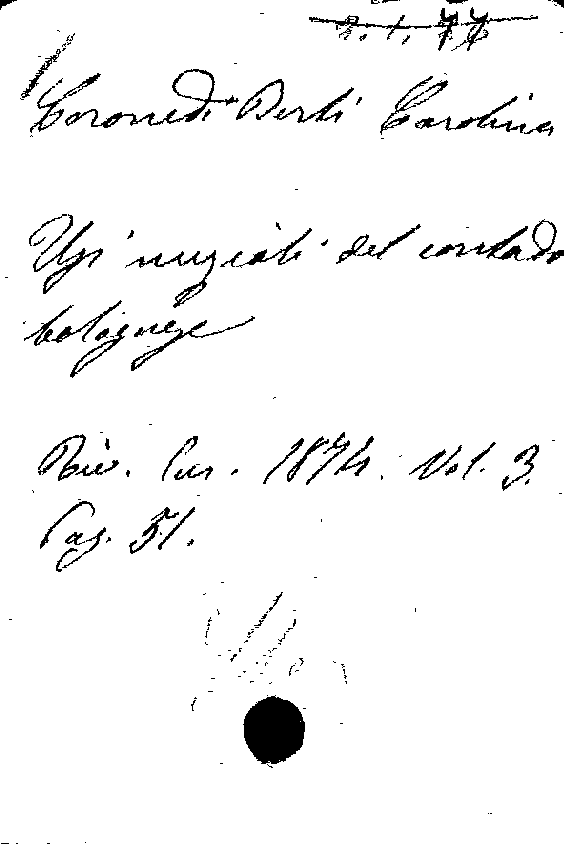 2. 1. 77
Coronedi Berti Carolina
Usi nuziali del contado
bolognese
Riv. Eur. 1874. Vol. 3.
Pag. 51.